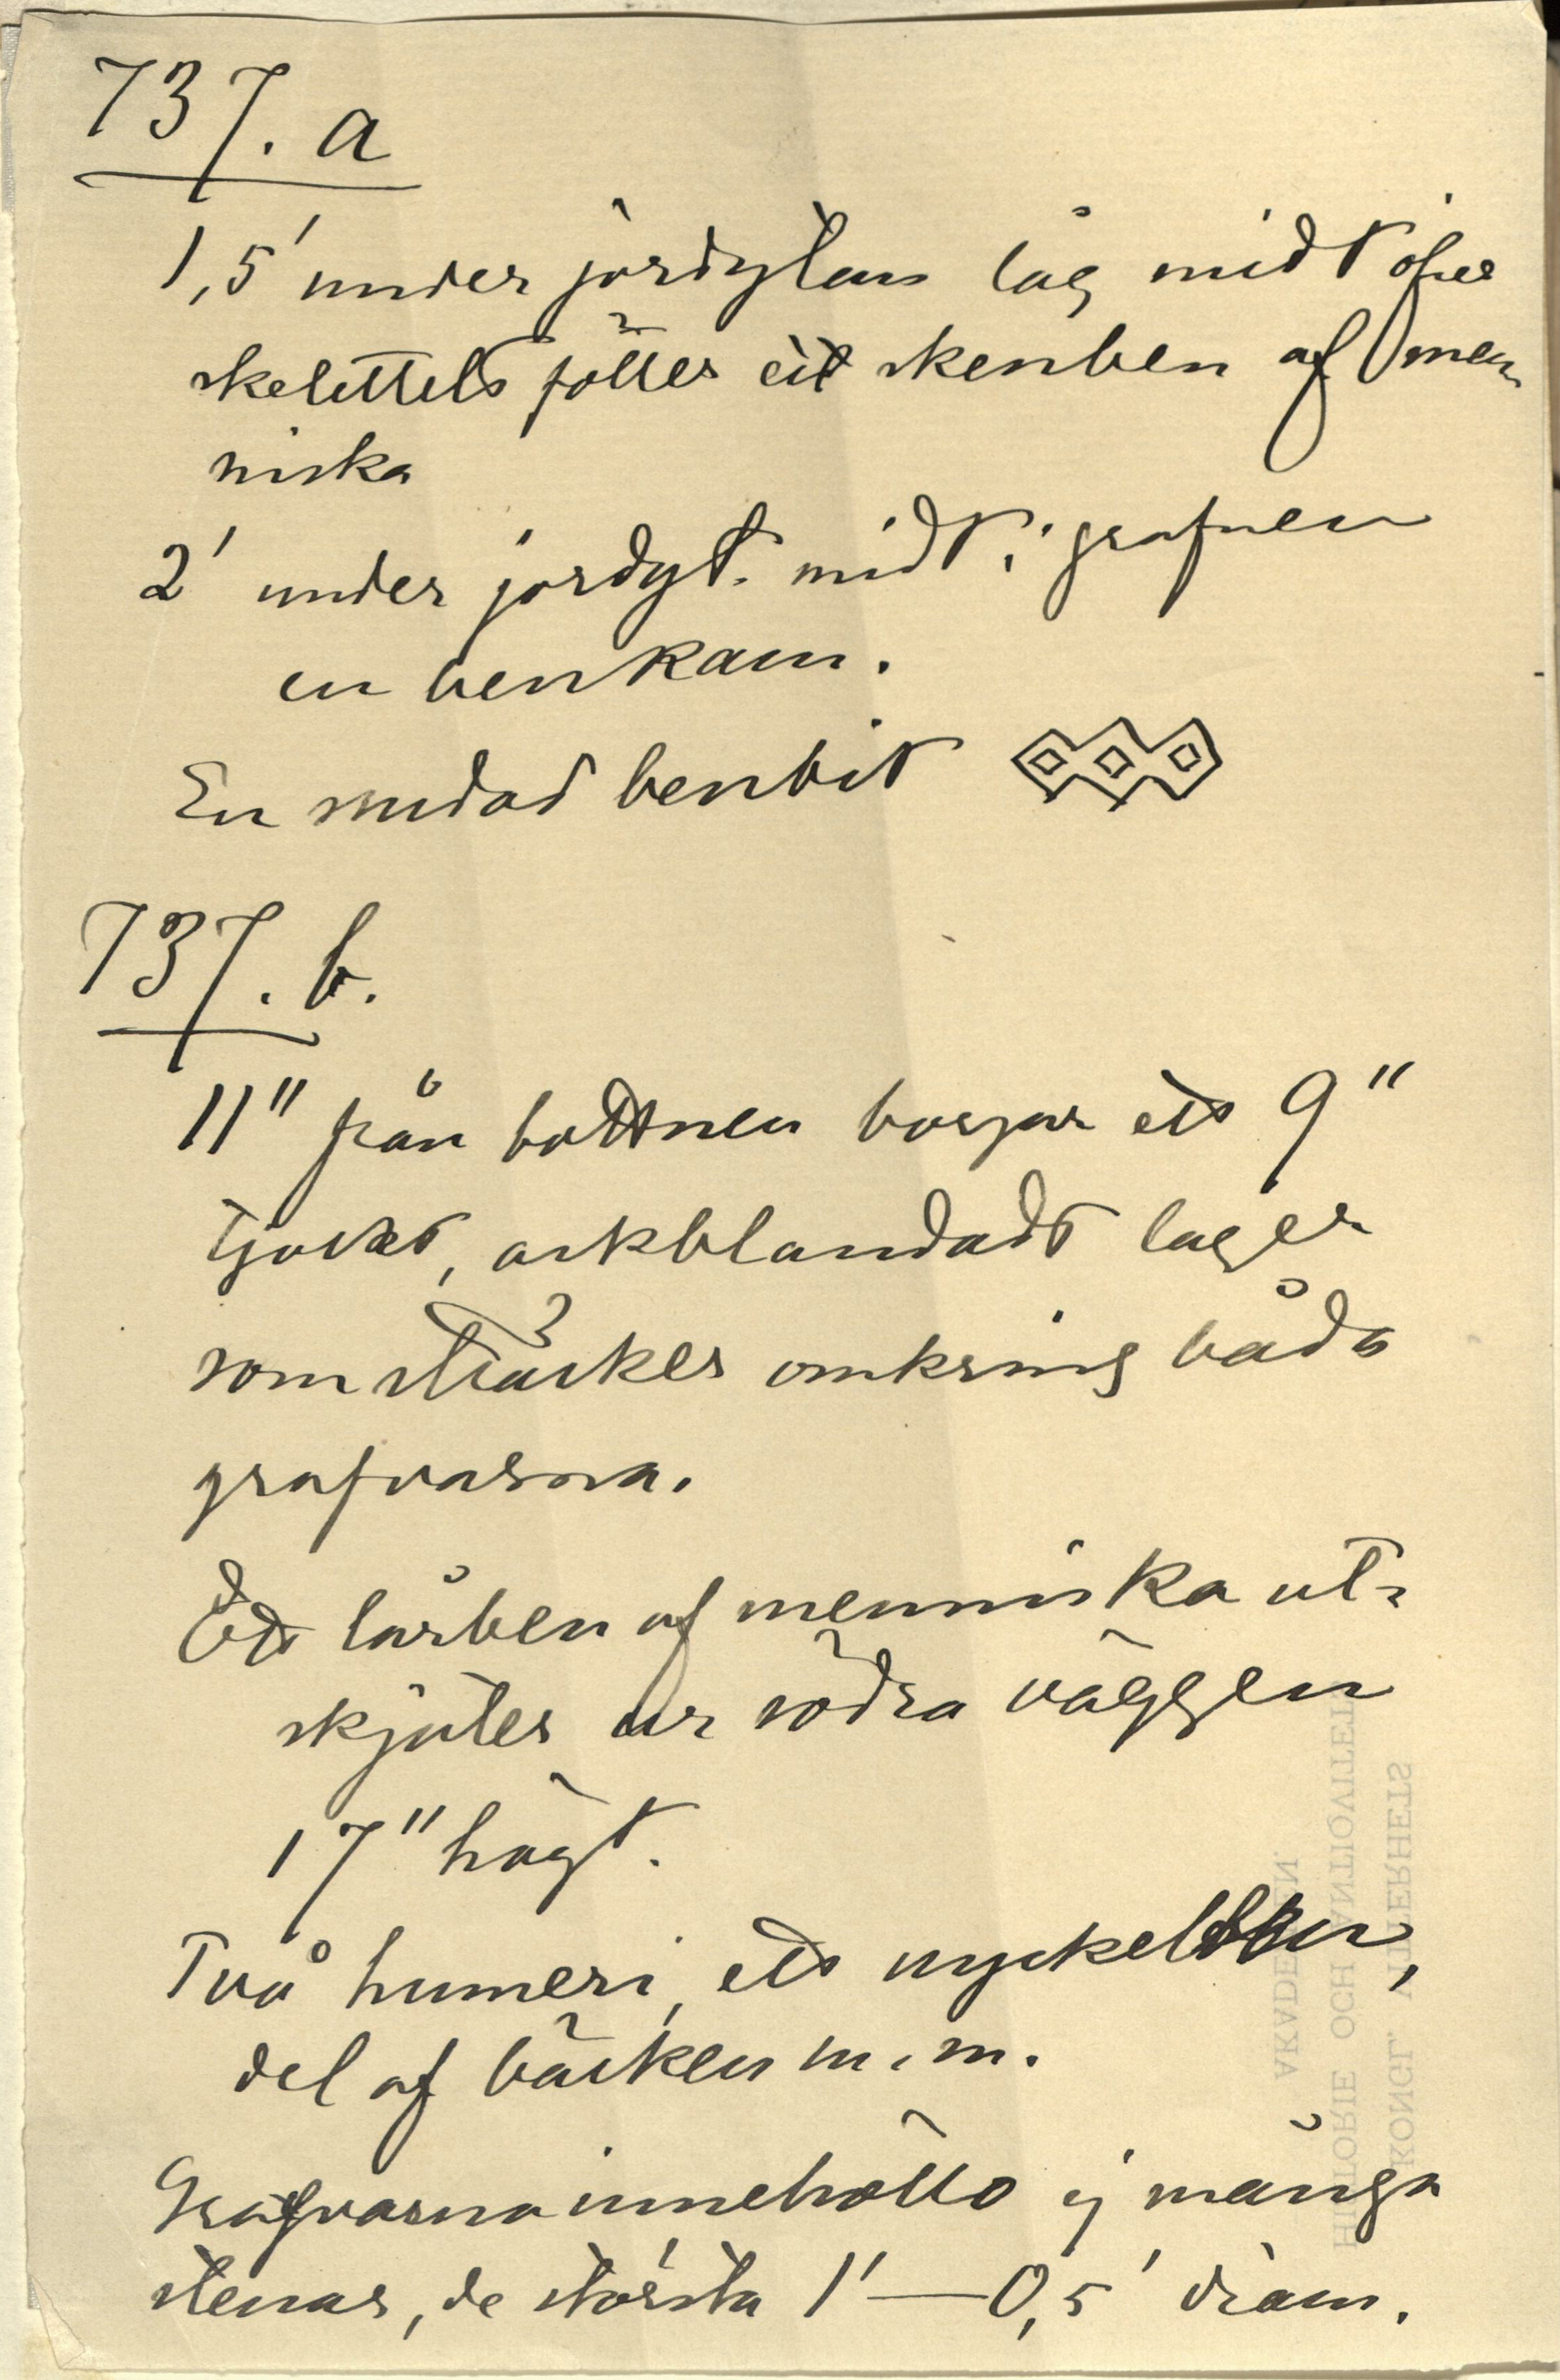 737. a
1,5' under jordytan låg midt öfver
skelettets fötter ett skenben af men-
niska
2' under jordyt. midt i grafven
en benkam.
En snidad benbit
737. b.
11" från bottnen börjar ett 9"
tjockt, askblandadt lager
som sträcker omkring båda
grafvarna.
Ett lårben af menniska ut-
skjuter ur södra väggen
17" högt.
Två humeri, ett nyckelben,
del af bäcken m.m.
Grafvarna innehöllo ej många
stenar, de största 1'—0,5' diam.
KONGL. VITTERHETS
HISTORIE OCH ANTIQVITETS
AKADEMIEN.